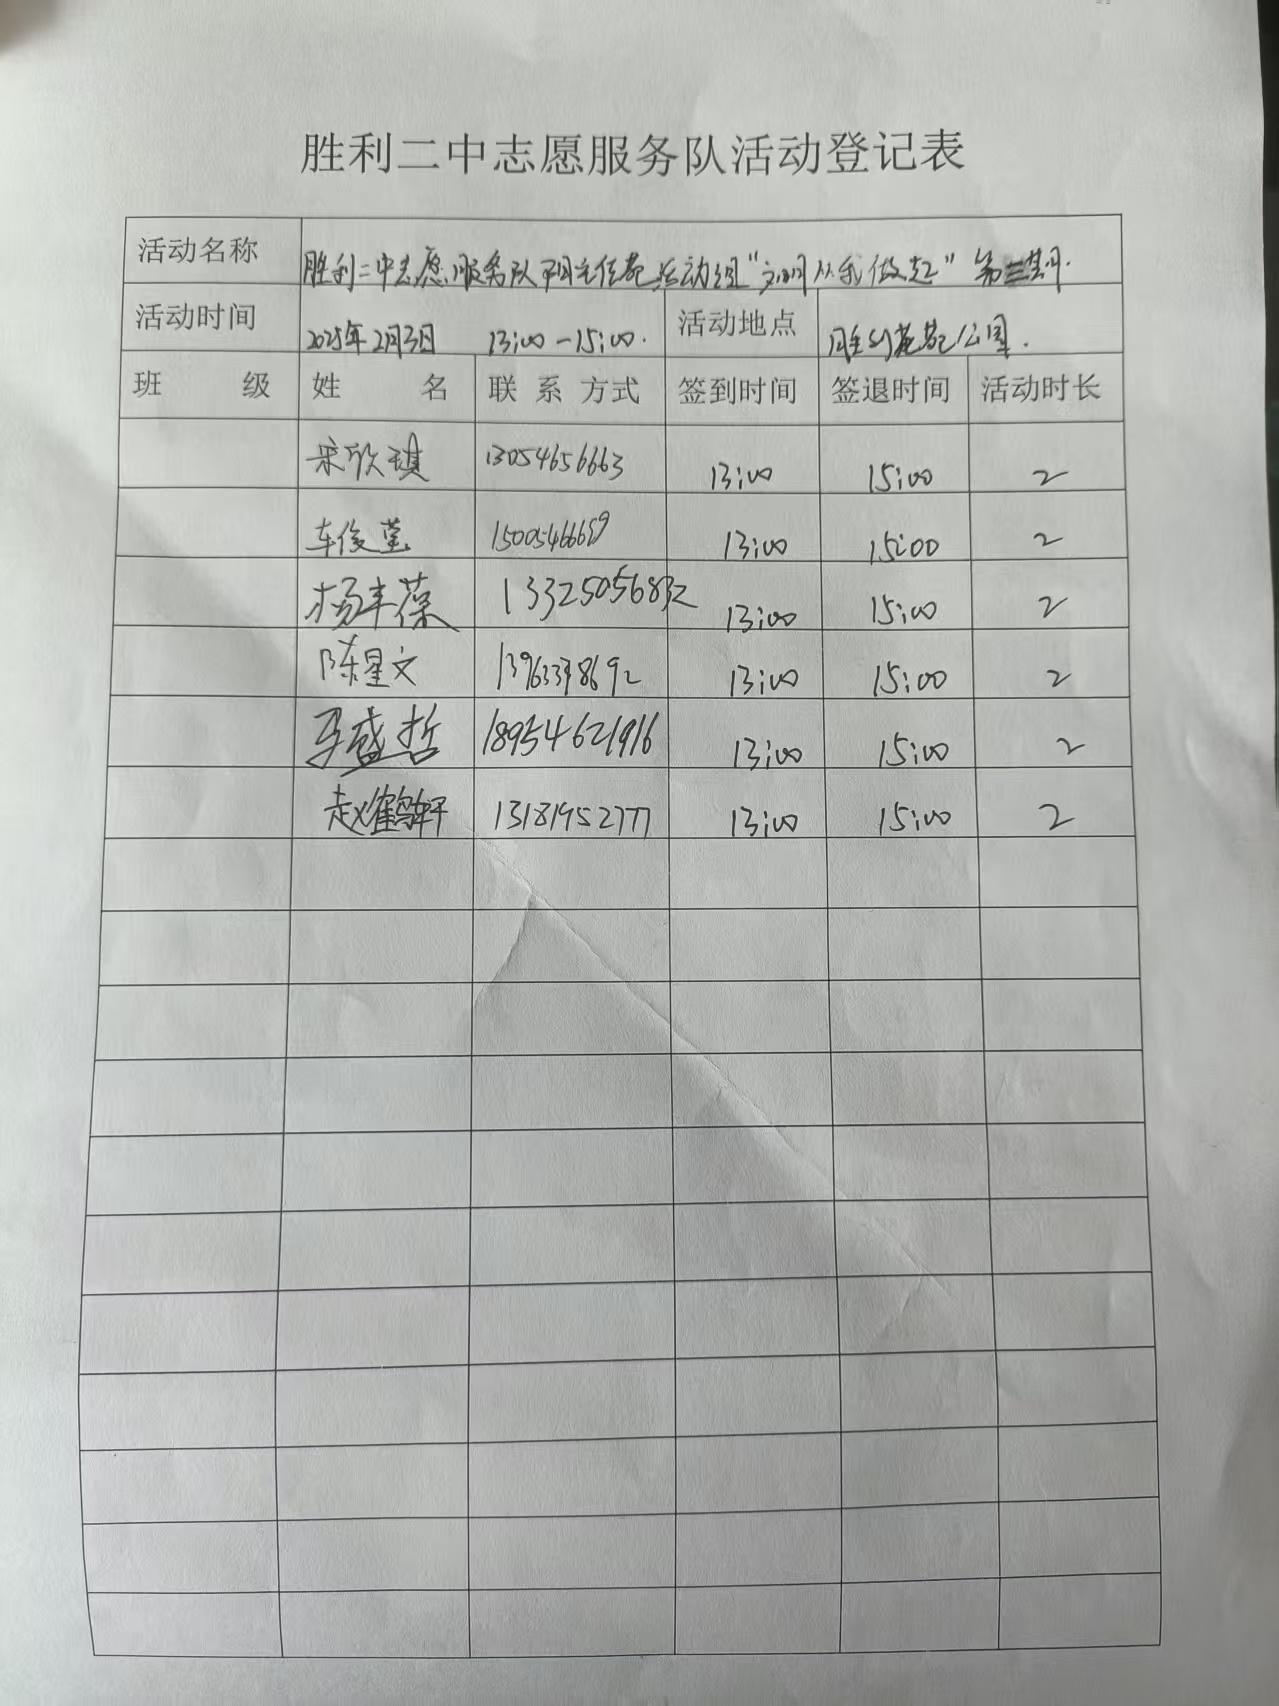 胜利二中志愿服务队活动登记表
活动名称 胜利二中志愿服务队阳光佳苑活动组“文明从我做起”第三期.
活动时间 2025年2月3日 13:00-15:00. 活动地点 胜利花苑公园.
班 级 姓 名 联 系 方式 签到时间 签退时间 活动时长
宋欣琪 13054656663 13:00 15:00 2
车俊莹 15005466659 13:00 15:00 2
杨丰葆 13325056832 13:00 15:00 2
陈星文 13:00 15:00 2
盛哲 18954621916 13:00 15:00 2
赵鹤轩 13181952777 13:00 15:00 2